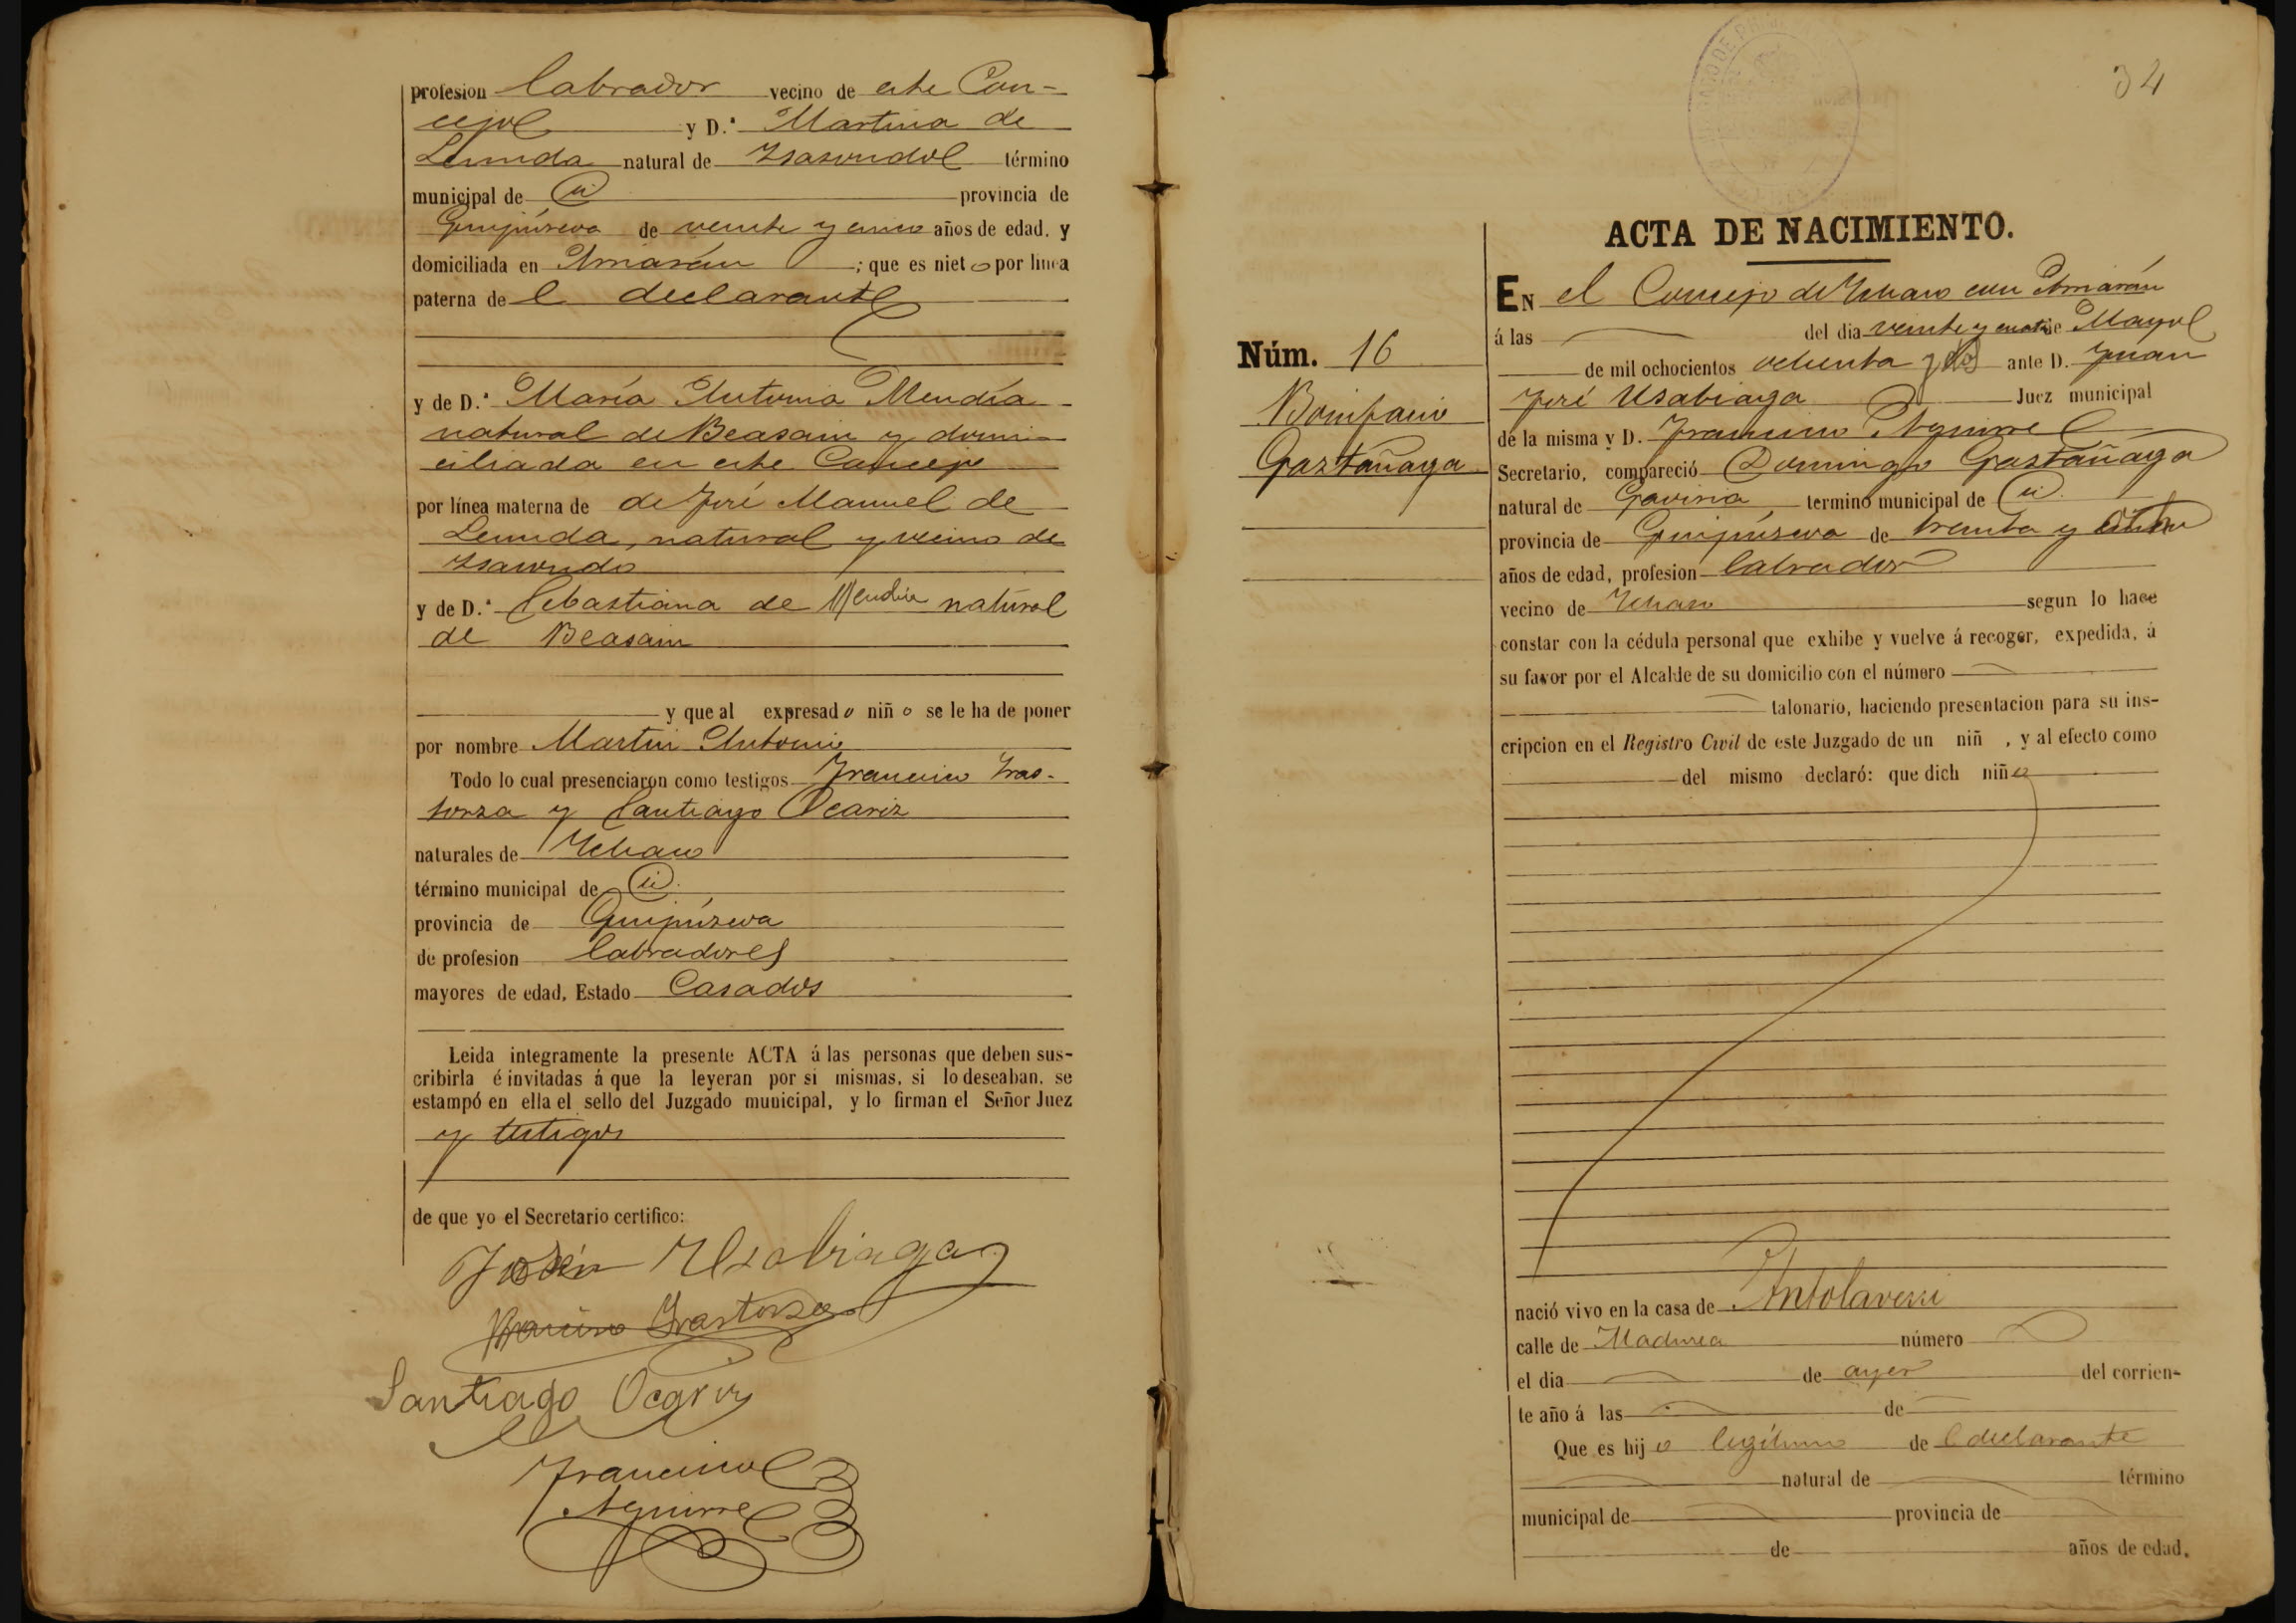 profesion labrador vecino de este Con-
cejo y D.ª Martina de
Lemida natural de Isasondo término
municipal de id provincia de
Guipúzcoa de veinte y cinco años de edad, y
domiciliada en Arriarán ; que es niet o por linea
paterna de l declarante
y de D.ª María Antonia Mendía
natural de Beasain y domi-
ciliada en este Concejo
por línea materna de de José Manuel de
Lemida, natural y vecino de
Isasondo
y de D.ª Sebastiana de Mendia natural
de Beasain
y que al expresad o niñ o se le ha de poner
por nombre Martin Antonio
Todo lo cual presenciaron como testigos Francisco Iras-
torza y Santiago Ocariz
naturales de Ichaso
término municipal de id.
provincia de Guipúzcoa
de profesion labradores
mayores de edad, Estado Casados
Leida integramente la presente ACTA á las personas que deben sus-
cribirla é invitadas á que la leyeran por si mismas, si lo deseaban, se
estampó en ella el sello del Juzgado municipal, y lo firman el Señor Juez
y testigos
de que yo el Secretario certifico:
Usabiaga
Francisco Irastorza
Santiago Ocariz
Francisco
Aguirre
34
ACTA DE NACIMIENTO.
EN el Concejo de Ichaso con Arriarán
á las del dia veinte y cuatro de Mayo
de mil ochocientos ochenta y dos ante D. Juan
José Usabiaga Juez municipal
de la misma y D. Francisco Aguirre
Secretario, compareció Domingo Gaztañaga
natural de Gaviria termino municipal de id.
provincia de Guipúzcoa de treinta y
años de edad, profesion labrador
vecino de Ichaso segun lo hace
constar con la cédula personal que exhibe y vuelve á recoger, expedida, á
su favor por el Alcalde de su domicilio con el número
talonario, haciendo presentacion para su ins-
cripcion en el Registro Civil de este Juzgado de un niñ , y al efecto como
del mismo declaró: que dich niño
Núm. 16
Bonifacio
Gaztañaga
nació vivo en la casa de Antolavessi
calle de Madurea número
el dia de ayer del corrien-
te año á las de
Que es hij o legítimo de l declarante
natural de término
municipal de provincia de
de años de edad,